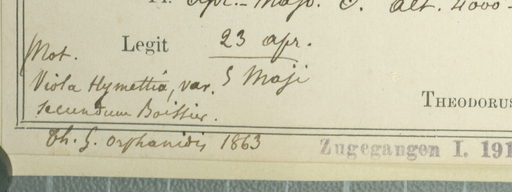 Fl. Apr. - Majo. C. alt. 4000-
Legit 23 apr.
5 Maji
Not.
Viola Hymettia, var.
secundum Boissier.
THEODORUS
Th. G. Orphanidis 1863
Zugegangen I. 191